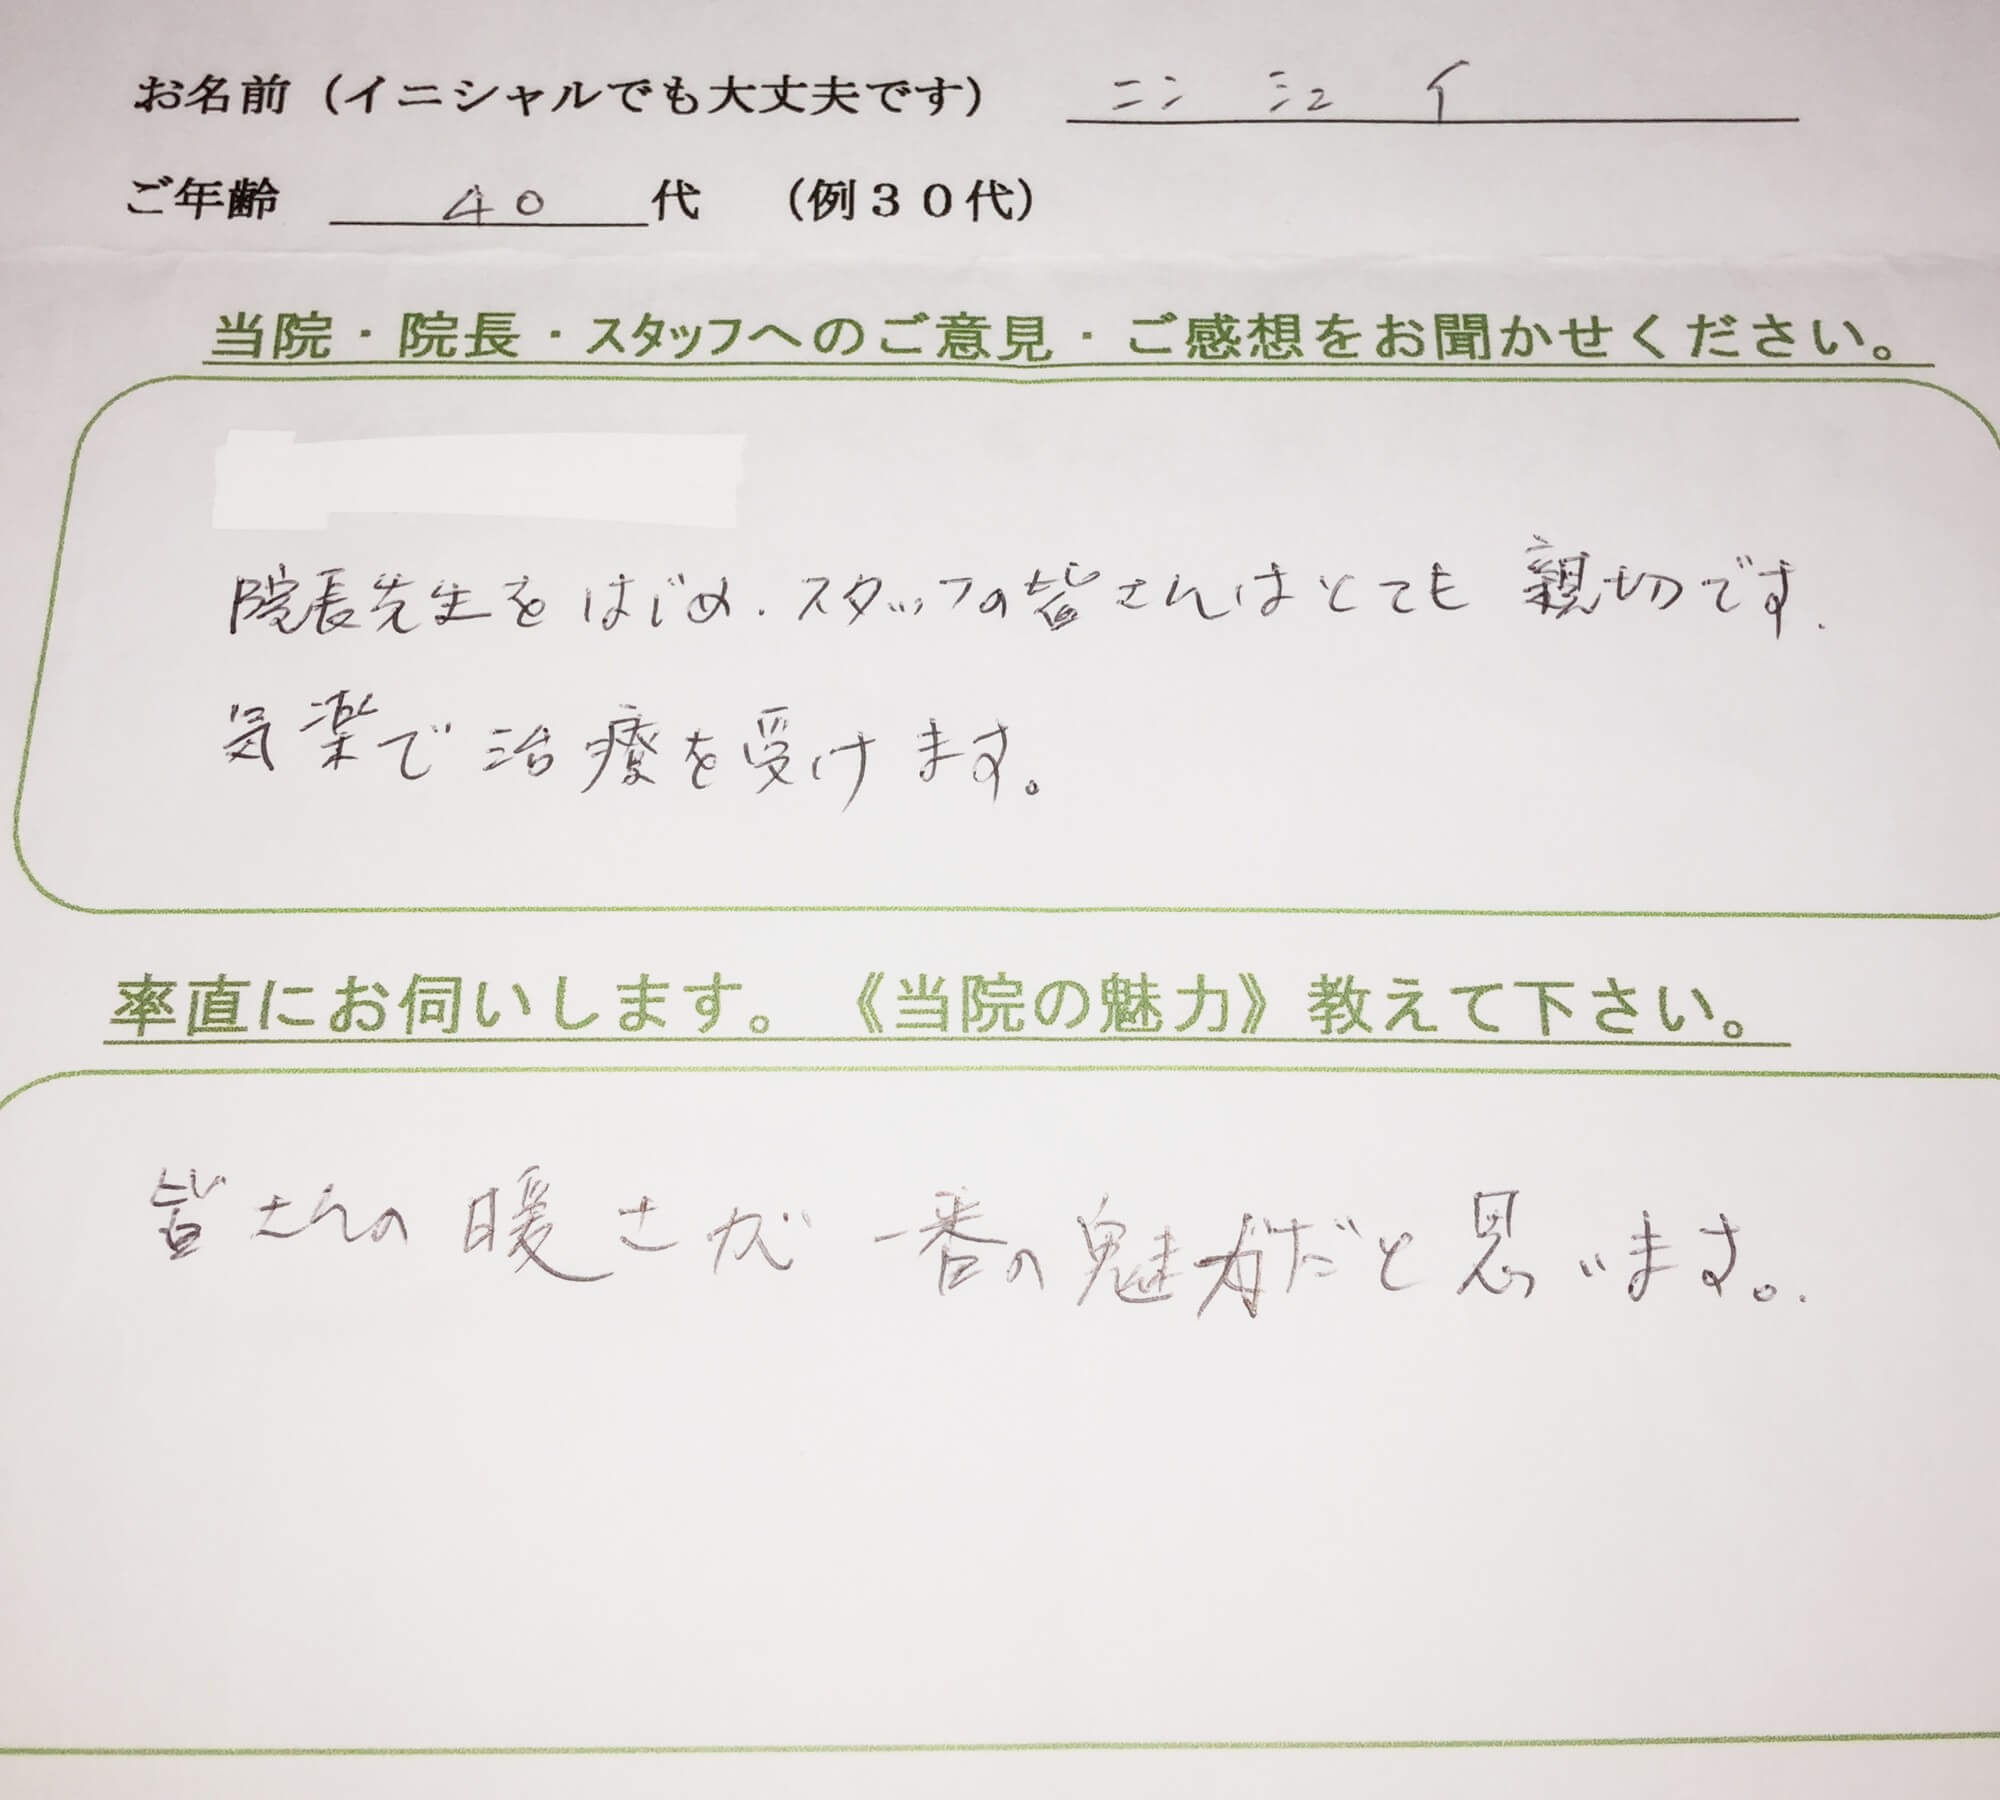 お名前（イニシャルでも大丈夫です） ニン シュ イ
ご年齢 40 代 （例３０代）
当院・院長・スタッフへのご意見・ご感想をお聞かせください。
院長先生をはじめ、スタッフの皆さんはとても親切です.
気楽で治療を受けます。
率直にお伺いします。《当院の魅力》教えて下さい。
皆さんの暖さが一番の魅力だと思います。